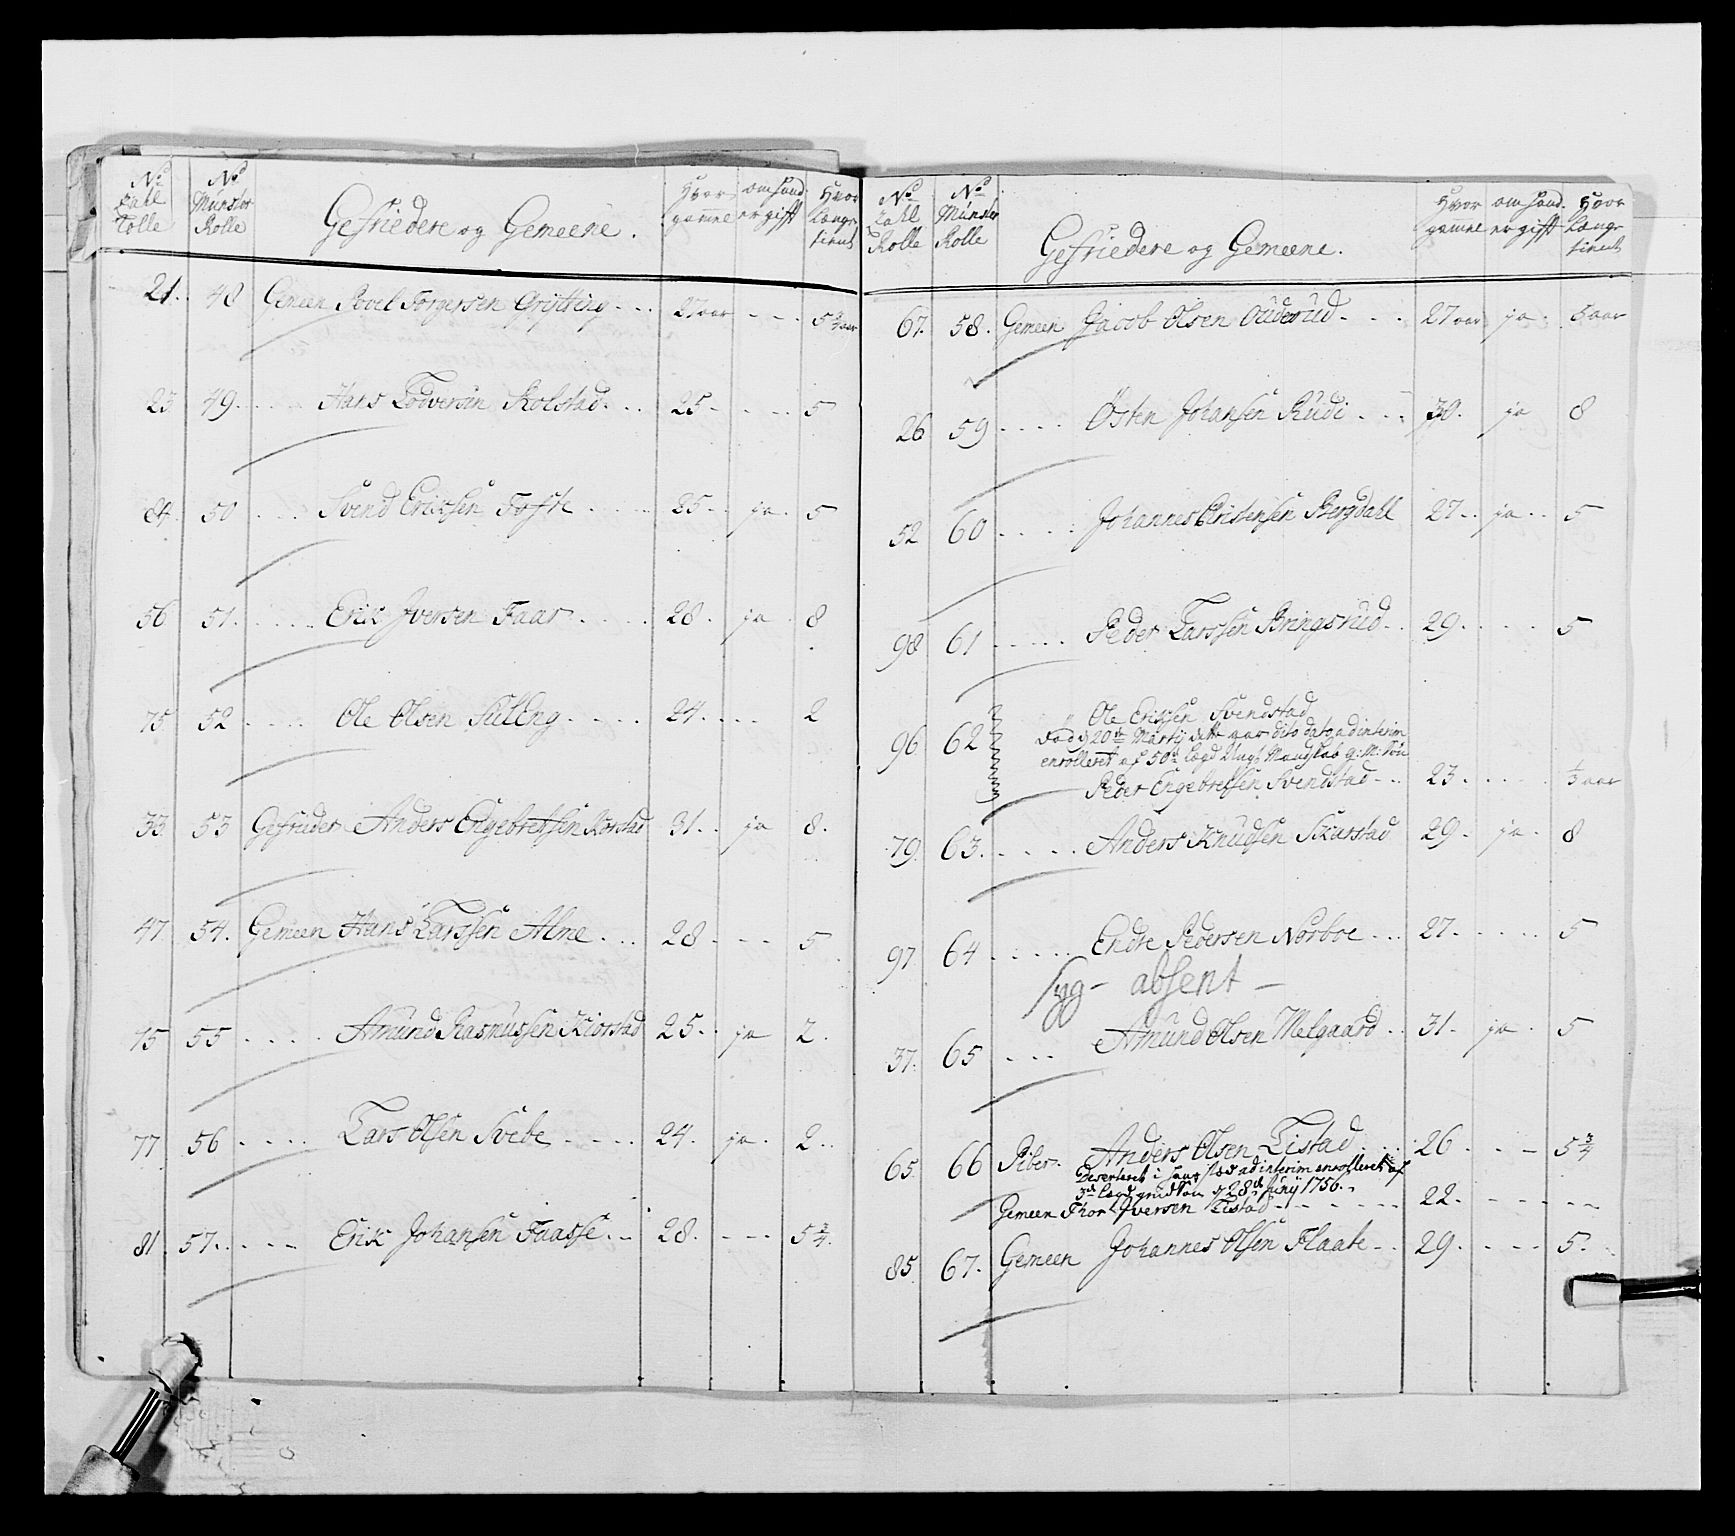 No Zahl Rolle | No Münster Rolle | Gefriedere og Gemeene. | Hvor gamel | om hand er gift | Hvor længe tient
21. 48 Gemeen Povel Torgersen Grÿtting - - - 27 aar - - - 5 3/4 aar
23. 49. - - - Hans Todversen Kolstad. - - 25 - - - - 5
84. 50 - - - Svend Erichsen Tofte - - - - 25 - - ja. 5
56 51. - - - - Erik Jversen Faar. - - - - 28. ja. 8
75. 52 - - - - Ole Olsen Sulleng. - - - - 24. - - - 2
33. 53 Gefrieder Anders Engebretsen Korstad 31. ja 8.
47. 54. Gemeen Hans Larssen Alme. - - 28 - - - 5
15 55 - - - - Amund Rasmussen Kiorstad 25. - ja 2.
77. 56 - - - - Lars Olsen Svebe - - - - 24. ja. 2. .
81. 57. - - - - Erik Johansen Faasse. - - 28. - - - 5 3/4.
No Zahl Rolle | No Münster Rolle | Gefriedere og Gemeene. | Hvor gamel | om hand er gift | Hvor længe tient
67. 58. Gemeen Jacob Olsen Ouderud - - - 27 aar ja. 5 aar
26 59 - - - - Östen Johansen Rudi - - - 30. ja 8
52 60 - - - - Johannes Cristensen Bergdahl 27 - - ja - - 5
98 61 - - - - - Peder Larssen Bringsrud - - 29 - - - - 5
96. 62 Ole Eriksen Svendstad
Död d 20de Martij dette aar dito dato ad interim
enrolleret af 50de Lægd Ungt Mandskab
Peder Engebretsen Svendstad - - 23 - - - - 1/3 aar
79. 63. - - - - Anders Knudsen Skarstad 29. ja. 8
97. 64 - - - - - Endre Pedersen Norboe - - - 27. - - - - 5
syg - absent -
37. 65 - - - Amund Olsen Melgaard - - 31. ja. 5
65. 66 Piber. Anders Olsen Listad - - - 26 - - - 5 3/4
Deserteret i hans sted ad interim enrolleret af
3de Lægd 28de Junij 1756. -
Gemeen Thor Iversen Listad - - - - - - 22. - - - - -
85. 67. Gemeen Johannes Olsen Flaate - - 29. - - - 5.